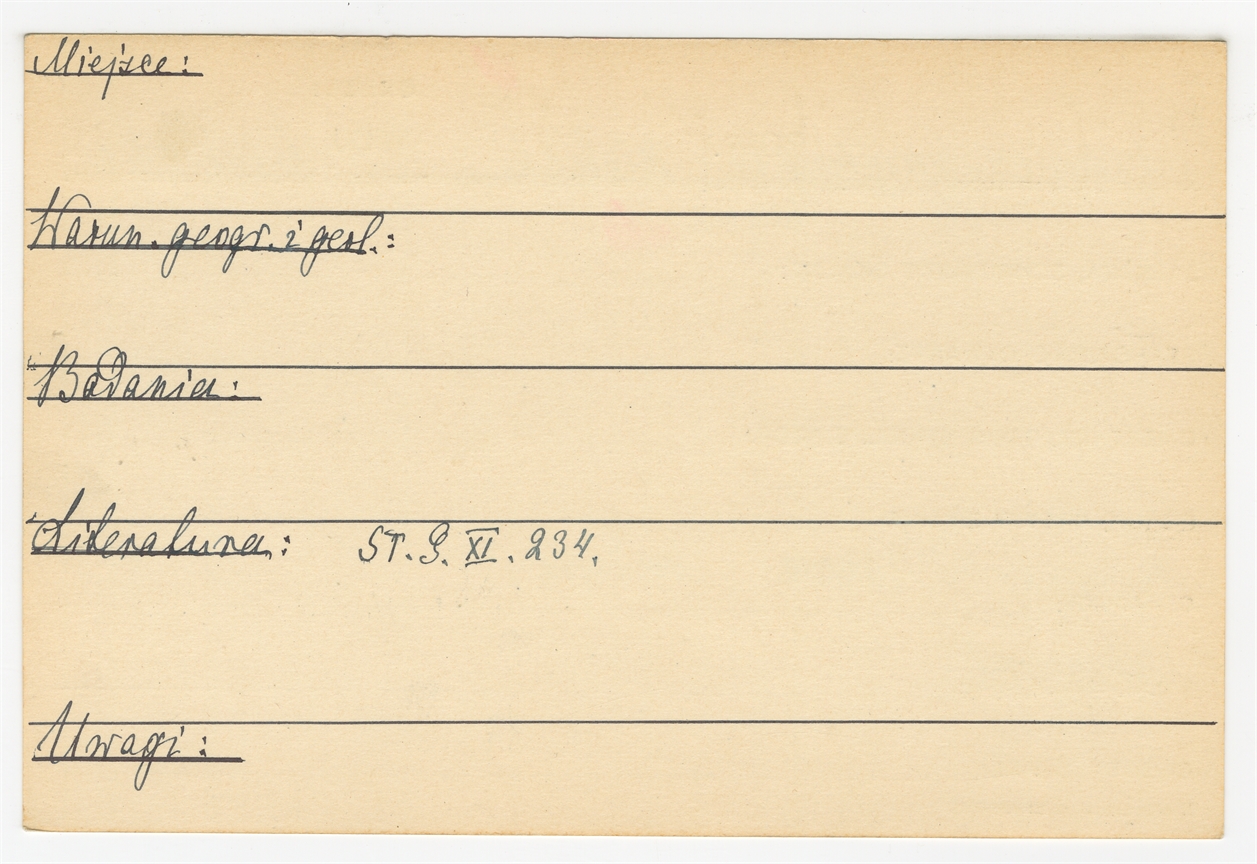 Miejsce:
Warun. geogr. i geol.:
Badania:
Literatura: ST. G. XI. 234.
Uwagi: